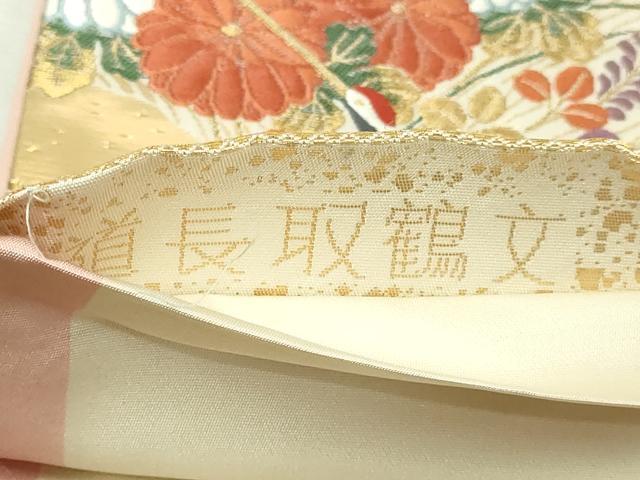 道長取鶴文